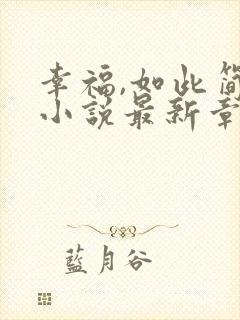 幸福,如此简
小说最新章
蓝月谷